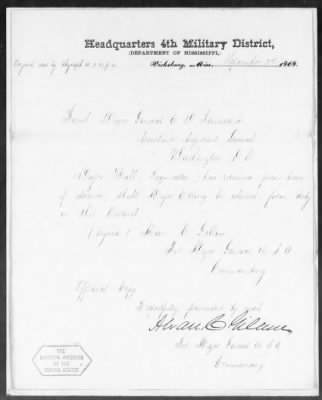 Headquarters 4th Military District,
(DEPARTMENT OF MISSISSIPPI,)
Original sent by telegraph
Vicksburg, Miss. September 1868.
Brevet Major General E D Townsend
Assistant Adjutant General
Washington D C
Major Hall Paymaster has returned from leave
of absence shall Major Ewing be relieved from duty
in this District
(signed) Alvan C Gillem
Bvt Major General U S A
Commanding
Official Copy
Respectfully forwarded by mail
Alvan C Gillem
Bvt Major General U.S.A
Commanding
THE
NATIONAL ARCHIVES
OF THE
UNITED STATES